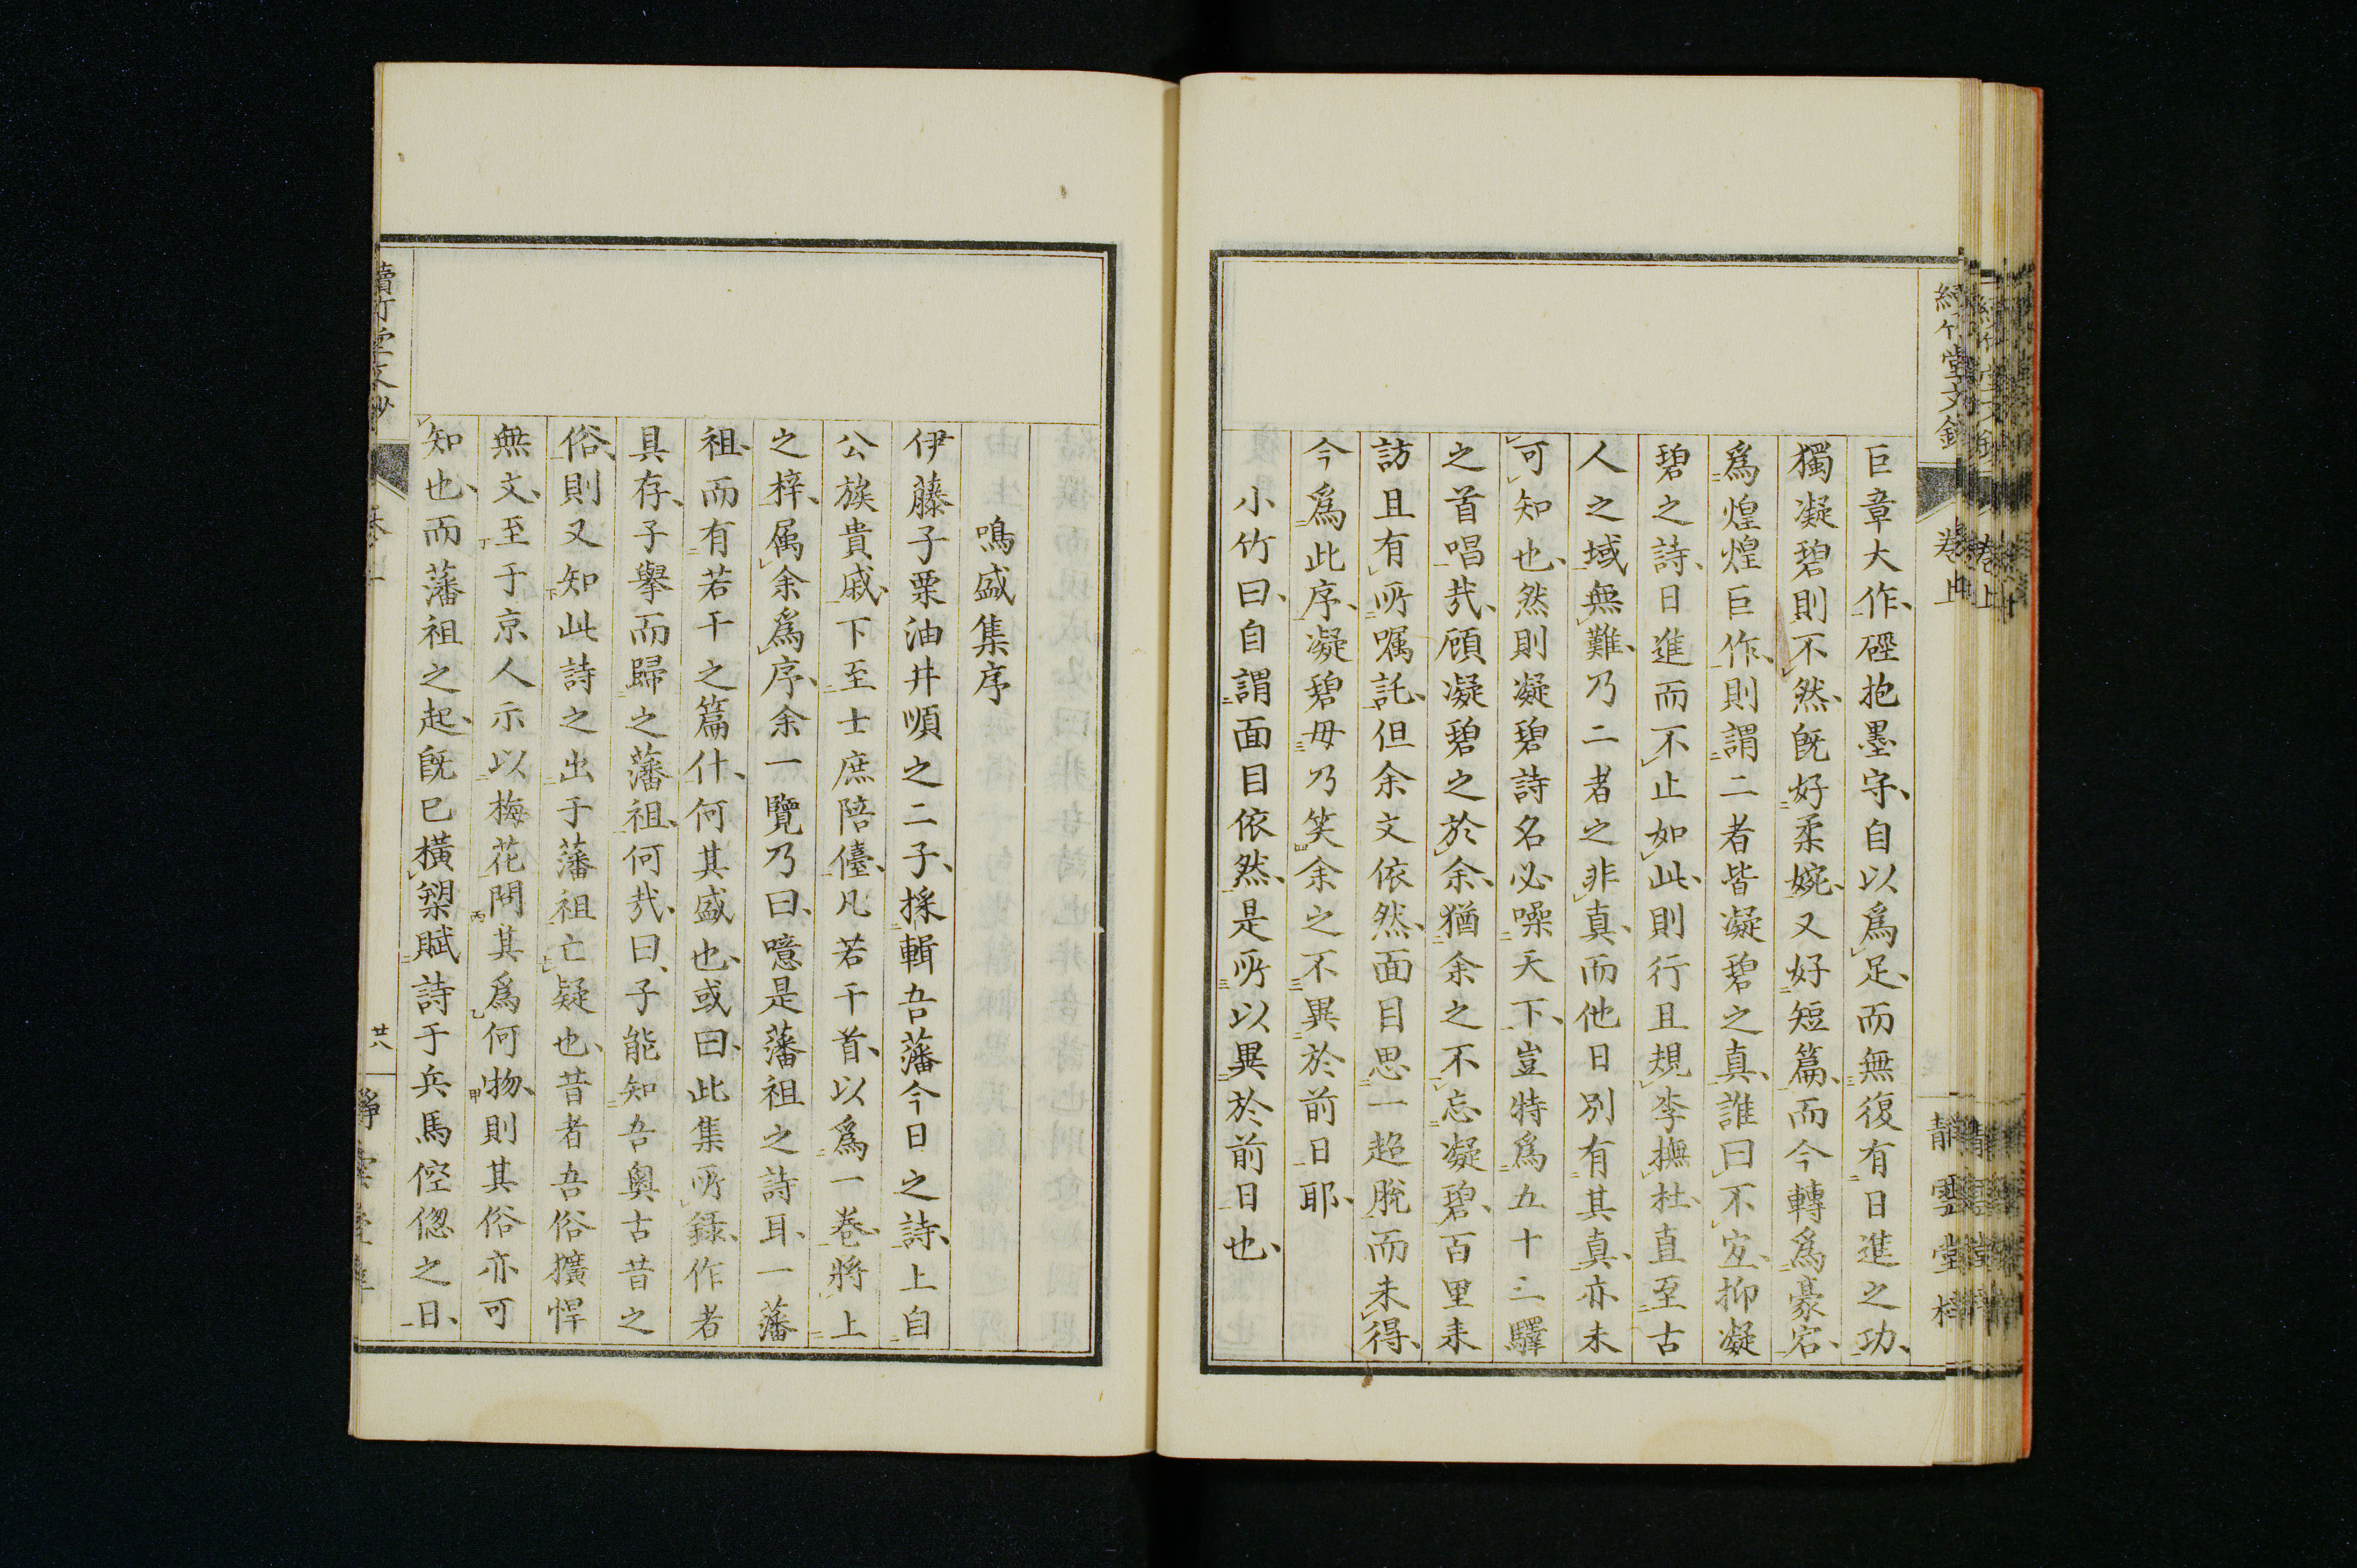 巨章大作、硜抱墨守、自以爲足、而無復有日進之功、
獨凝碧則不然、既好柔婉、又好短篇、而今轉爲豪宕、
爲煌煌巨作、則謂二者皆凝碧之真、誰曰不宜、抑凝
碧之詩、日進而不止如此、則行且規李撫杜、直至古
人之域無難、乃二者之非真、而他日別有其真、亦未
可知也、然則凝碧詩名必噪天下、豈特爲五十三驛
之首唱哉、顧凝碧之於余、猶余之不忘凝碧、百里来
訪且有所嘱託、但余文依然、面目思一超脫而未得、
今爲此序、凝碧毋乃笑余之不異於前日耶、
小竹曰、自謂面目依然、是所以異於前日也、
鳴盛集序
伊藤子粟油井順之二子、採輯吾藩今日之詩、上自
公族貴戚、下至士庶陪儓、凡若干首、以爲一巻、將上
之梓、属余爲序、余一覽乃曰、噫是藩祖之詩耳、一藩
祖、而有若干之篇什、何其盛也、或曰、此集所録、作者
具存、子擧而歸之藩祖、何哉、曰、子能知吾奥古昔之
俗、則又知此詩之出于藩祖亡疑也、昔者吾俗獷悍
無文、至于京人示以梅花問其爲何物、則其俗亦可
知也、而藩祖之起、既已橫槊賦詩于兵馬倥偬之日、
卷上
靜雲堂梓
廿八